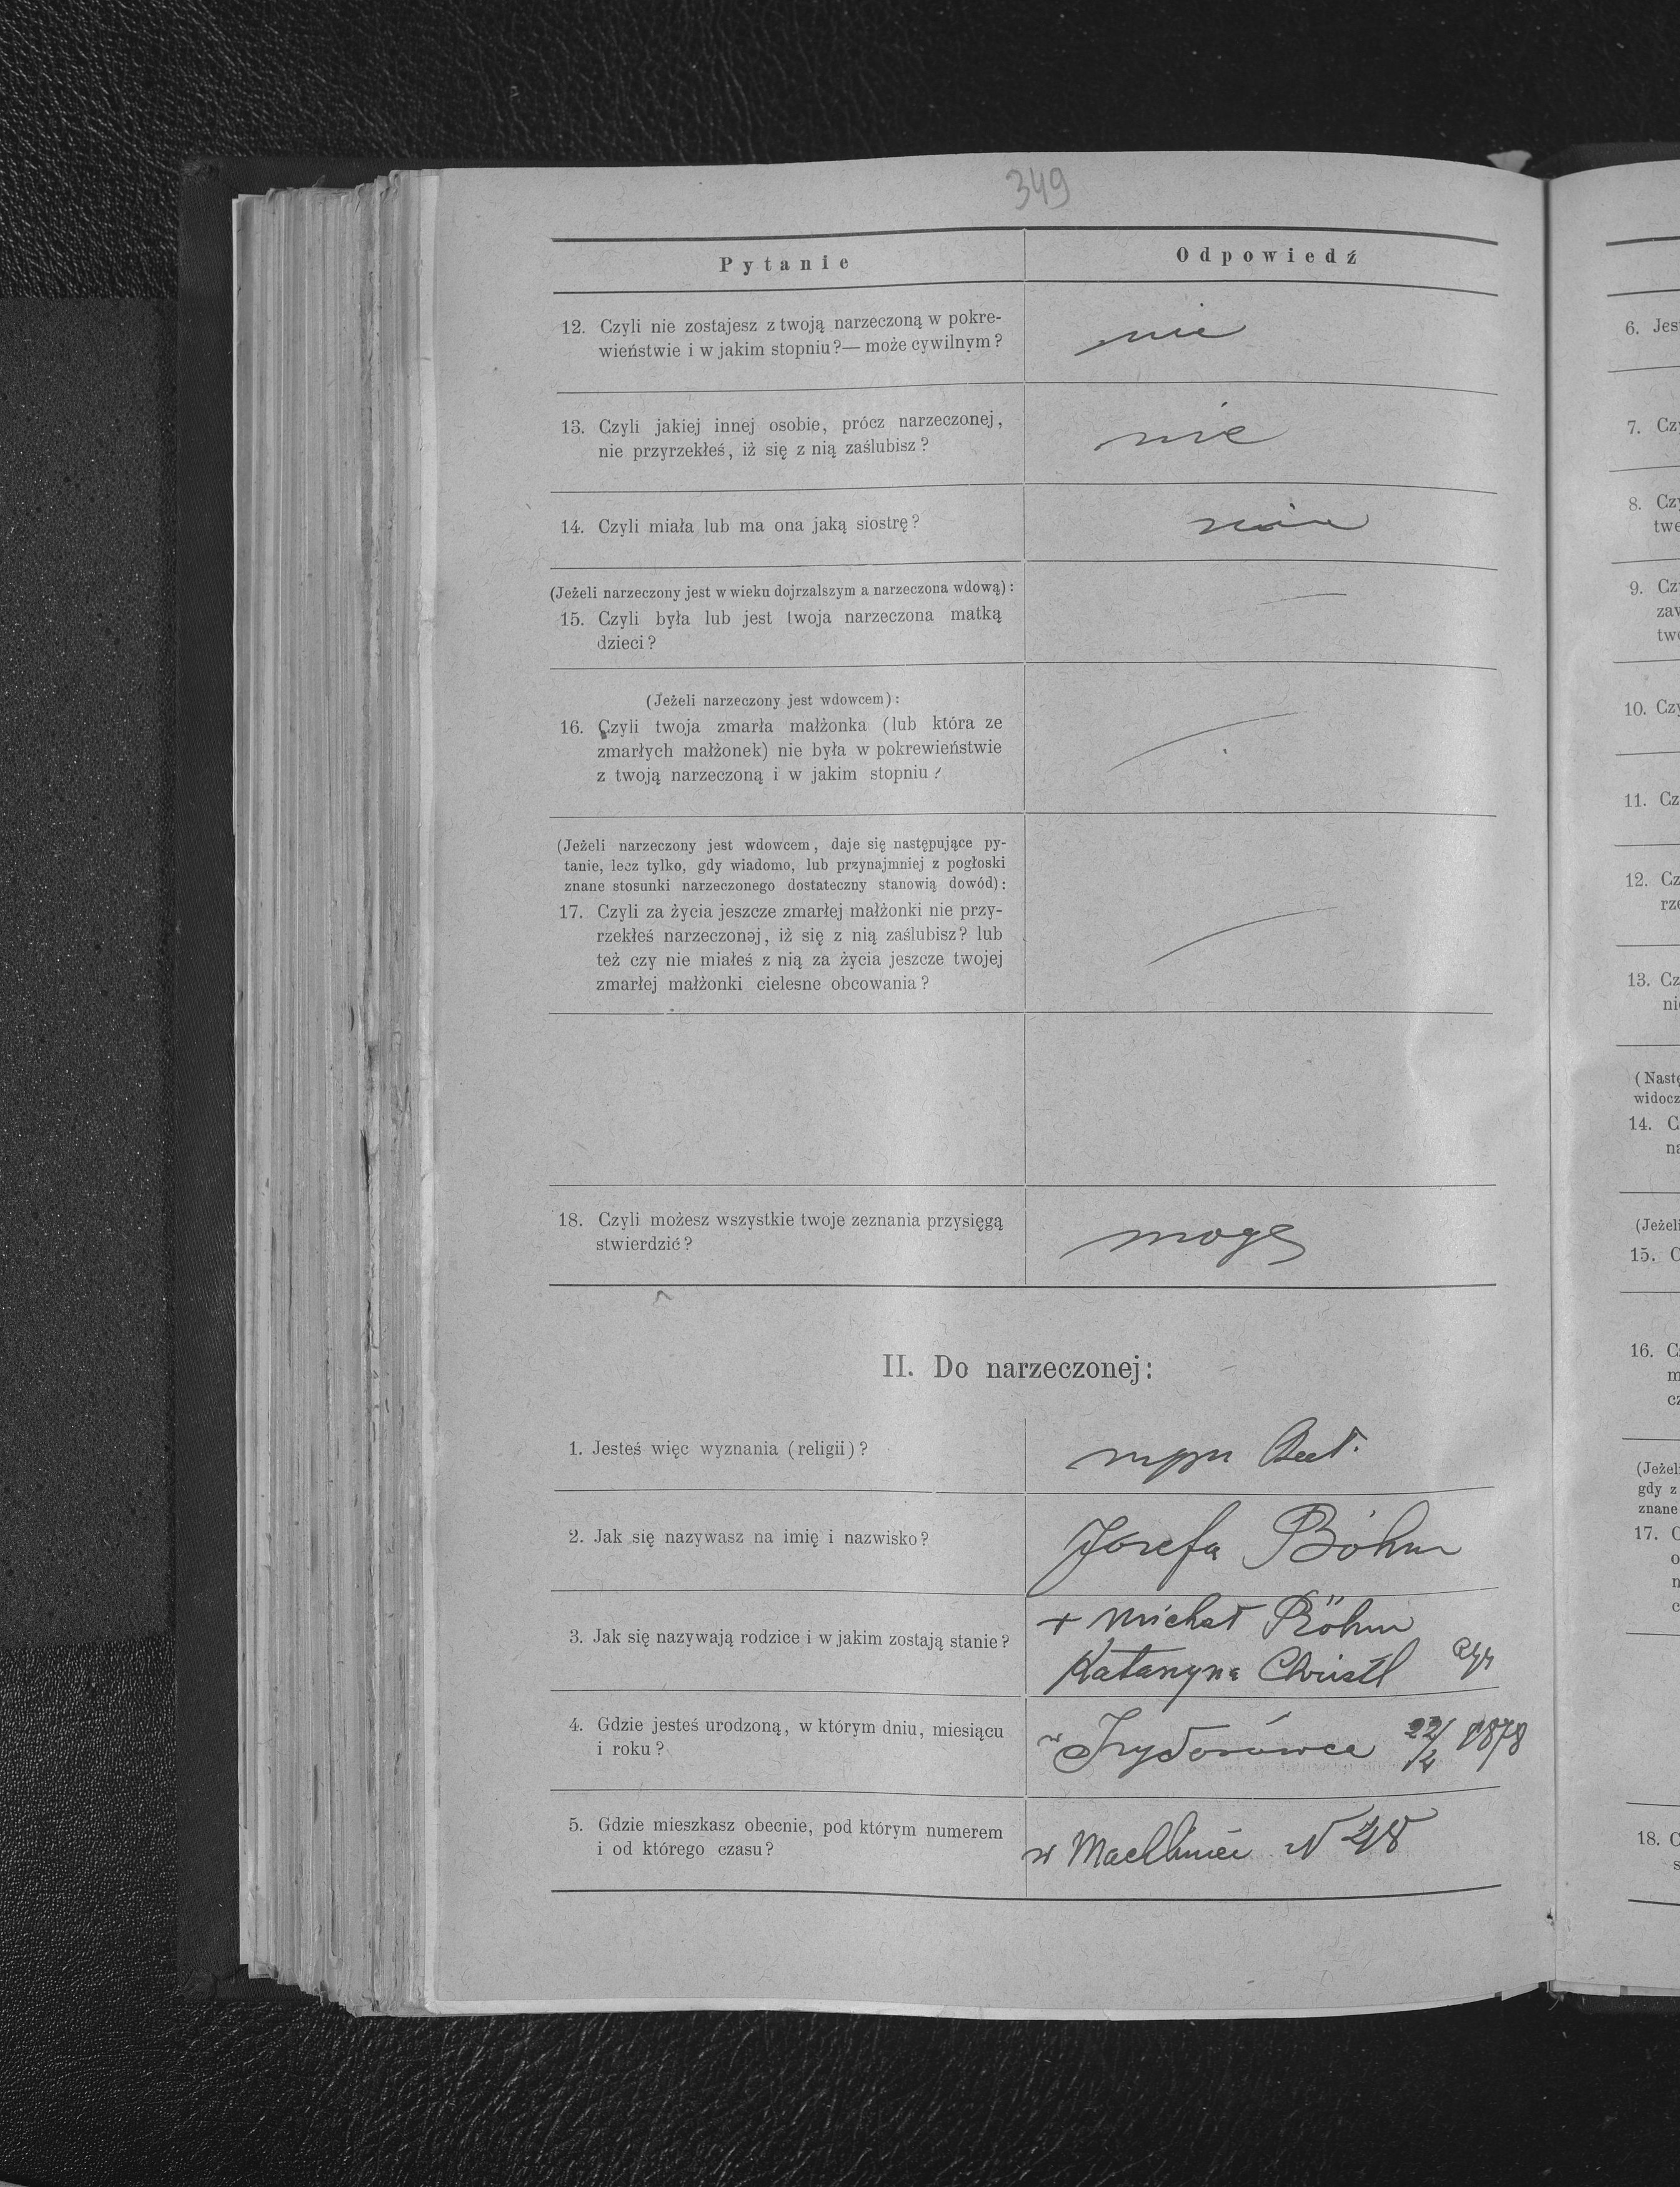 349
Pytanie Odpowiedź
12. Czyli nie zostajesz z twoją narzeczoną w pokre-
wieństwie i w jakim stopniu?— może cywilnym?
nie
13. Czyli jakiej innej osobie, prócz narzeczonej,
nie przyrzekłeś, iż się z nią zaślubisz?
nie
14. Czyli miała lub ma ona jaką siostrę?
(Jeżeli narzeczony jest w wieku dojrzalszym a narzeczona wdową):
15. Czyli była lub jest twoja narzeczona matką
dzieci?
(Jeżeli narzeczony jest wdowcem):
16. Czyli twoja zmarła małżonka (lub która ze
zmarłych małżonek) nie była w pokrewieństwie
z twoją narzeczoną i w jakim stopniu?
(Jeżeli narzeczony jest wdowcem, daje się następujące py-
tanie, lecz tylko, gdy wiadomo, lub przynajmniej z pogłoski
znane stosunki narzeczonego dostateczny stanowią dowód):
17. Czyli za życia jeszcze zmarłej małżonki nie przy-
rzekłeś narzeczonej, iż się z nią zaślubisz? lub
też czy nie miałeś z nią za życia jeszcze twojej
zmarłej małżonki cielesne obcowania?
18. Czyli możesz wszystkie twoje zeznania przysięgą
stwierdzić?
mogę
II. Do narzeczonej:
1. Jesteś więc wyznania (religii)?
2. Jak się nazywasz na imię i nazwisko?
Józefa Böhm
3. Jak się nazywają rodzice i w jakim zostają stanie?
+ Michał Böhm
Katarzyna Christl
4. Gdzie jesteś urodzoną, w którym dniu, miesiącu
i roku?
w Izydorówce 22/4 1878
5. Gdzie mieszkasz obecnie, pod którym numerem
i od którego czasu?
w Machlińcu N
6. Jes
7. Cz
8. Czy
twe
9. Cz
zaw
two
10. Czy
11. Cz
12. Cz
rze
13. Cz
nie
(Nastę
widocz
14. C
na
(Jeżeli
15. C
16. C
m
cz
(Jeżel
gdy z
znane
17. C
o
n
c
18. C
s